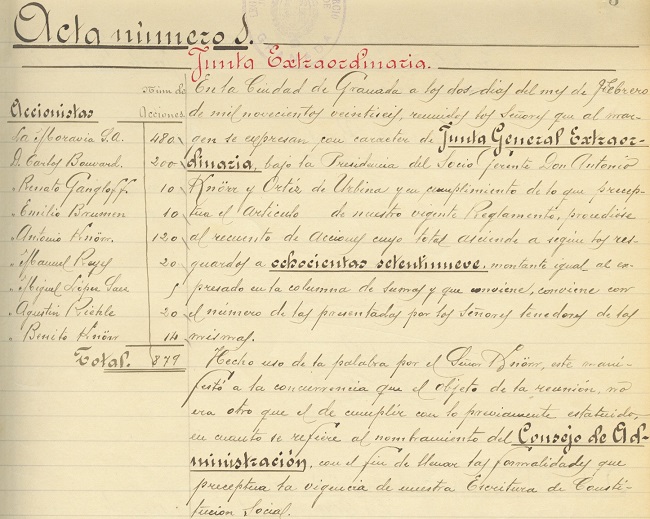 Acta número 1.
Junta Extraordinaria.
Accionistas
Núm de
Acciones
La Moravia S.A. 480
D. Carlos Bouvard. 200
" Renato Gangloff. 10
" Emilio 10
" Antonio Knörr. 120
" Manuel Reyes 20
" Miguel López Saez 5
" Agustín 20
" Benito Knörr 14
Total. 879
En la Ciudad de Granada a los dos días del mes de Febrero
de mil novecientos veintiseis, reunidos los Señores que al mar-
gen se expresan con caracter de Junta General Extraor-
dinaria, bajo la Presidencia del Socio Gerente Don Antonio
Knörr y Ortíz de Urbina y en cumplimiento de lo que precep-
tua el Artículo de nuestro vigente Reglamento, procedióse
al recuento de acciones cuyo total asciende a según los res-
guardos a ochocientas setentinueve, montante igual al ex-
presado en la columna de sumas y que conviene, conviene con
el número de las presentadas por los Señores tenedores de las
mismas.
Hecho uso de la palabra por el Señor Knörr, este mani-
festó a la concurrencia que el objeto de la reunión no
era otro que el de cumplir con lo previamente estatuido,
en cuanto se refiere al nombramiento del Consejo de Ad-
ministración, con el fin de llenar las formalidades que
preceptua la vigencia de nuestra Escritura de Consti-
tución Social.